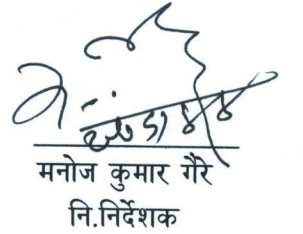 मनोज कुमार गैरे
नि.निर्देशक